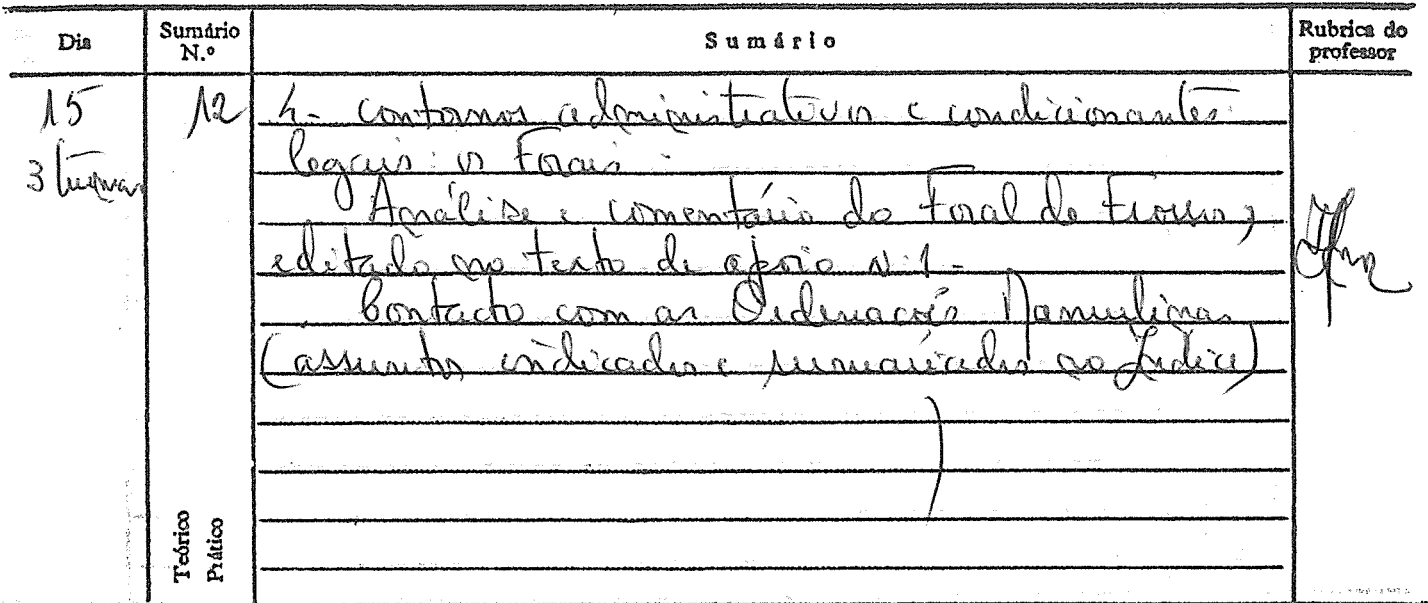 Dia
Sumário N.º
Sumário
Rubrica do professor
15
12
4 - Contornos administrativos e condicionantes
legais: os Forais.
3 turmas
Análise e comentário do Foral de
editado no texto de apoio N.º 1 -
Contacto com as Ordenações Manuelinas
(assuntos indicados e sumariados no Índice)
Teórico
Prático